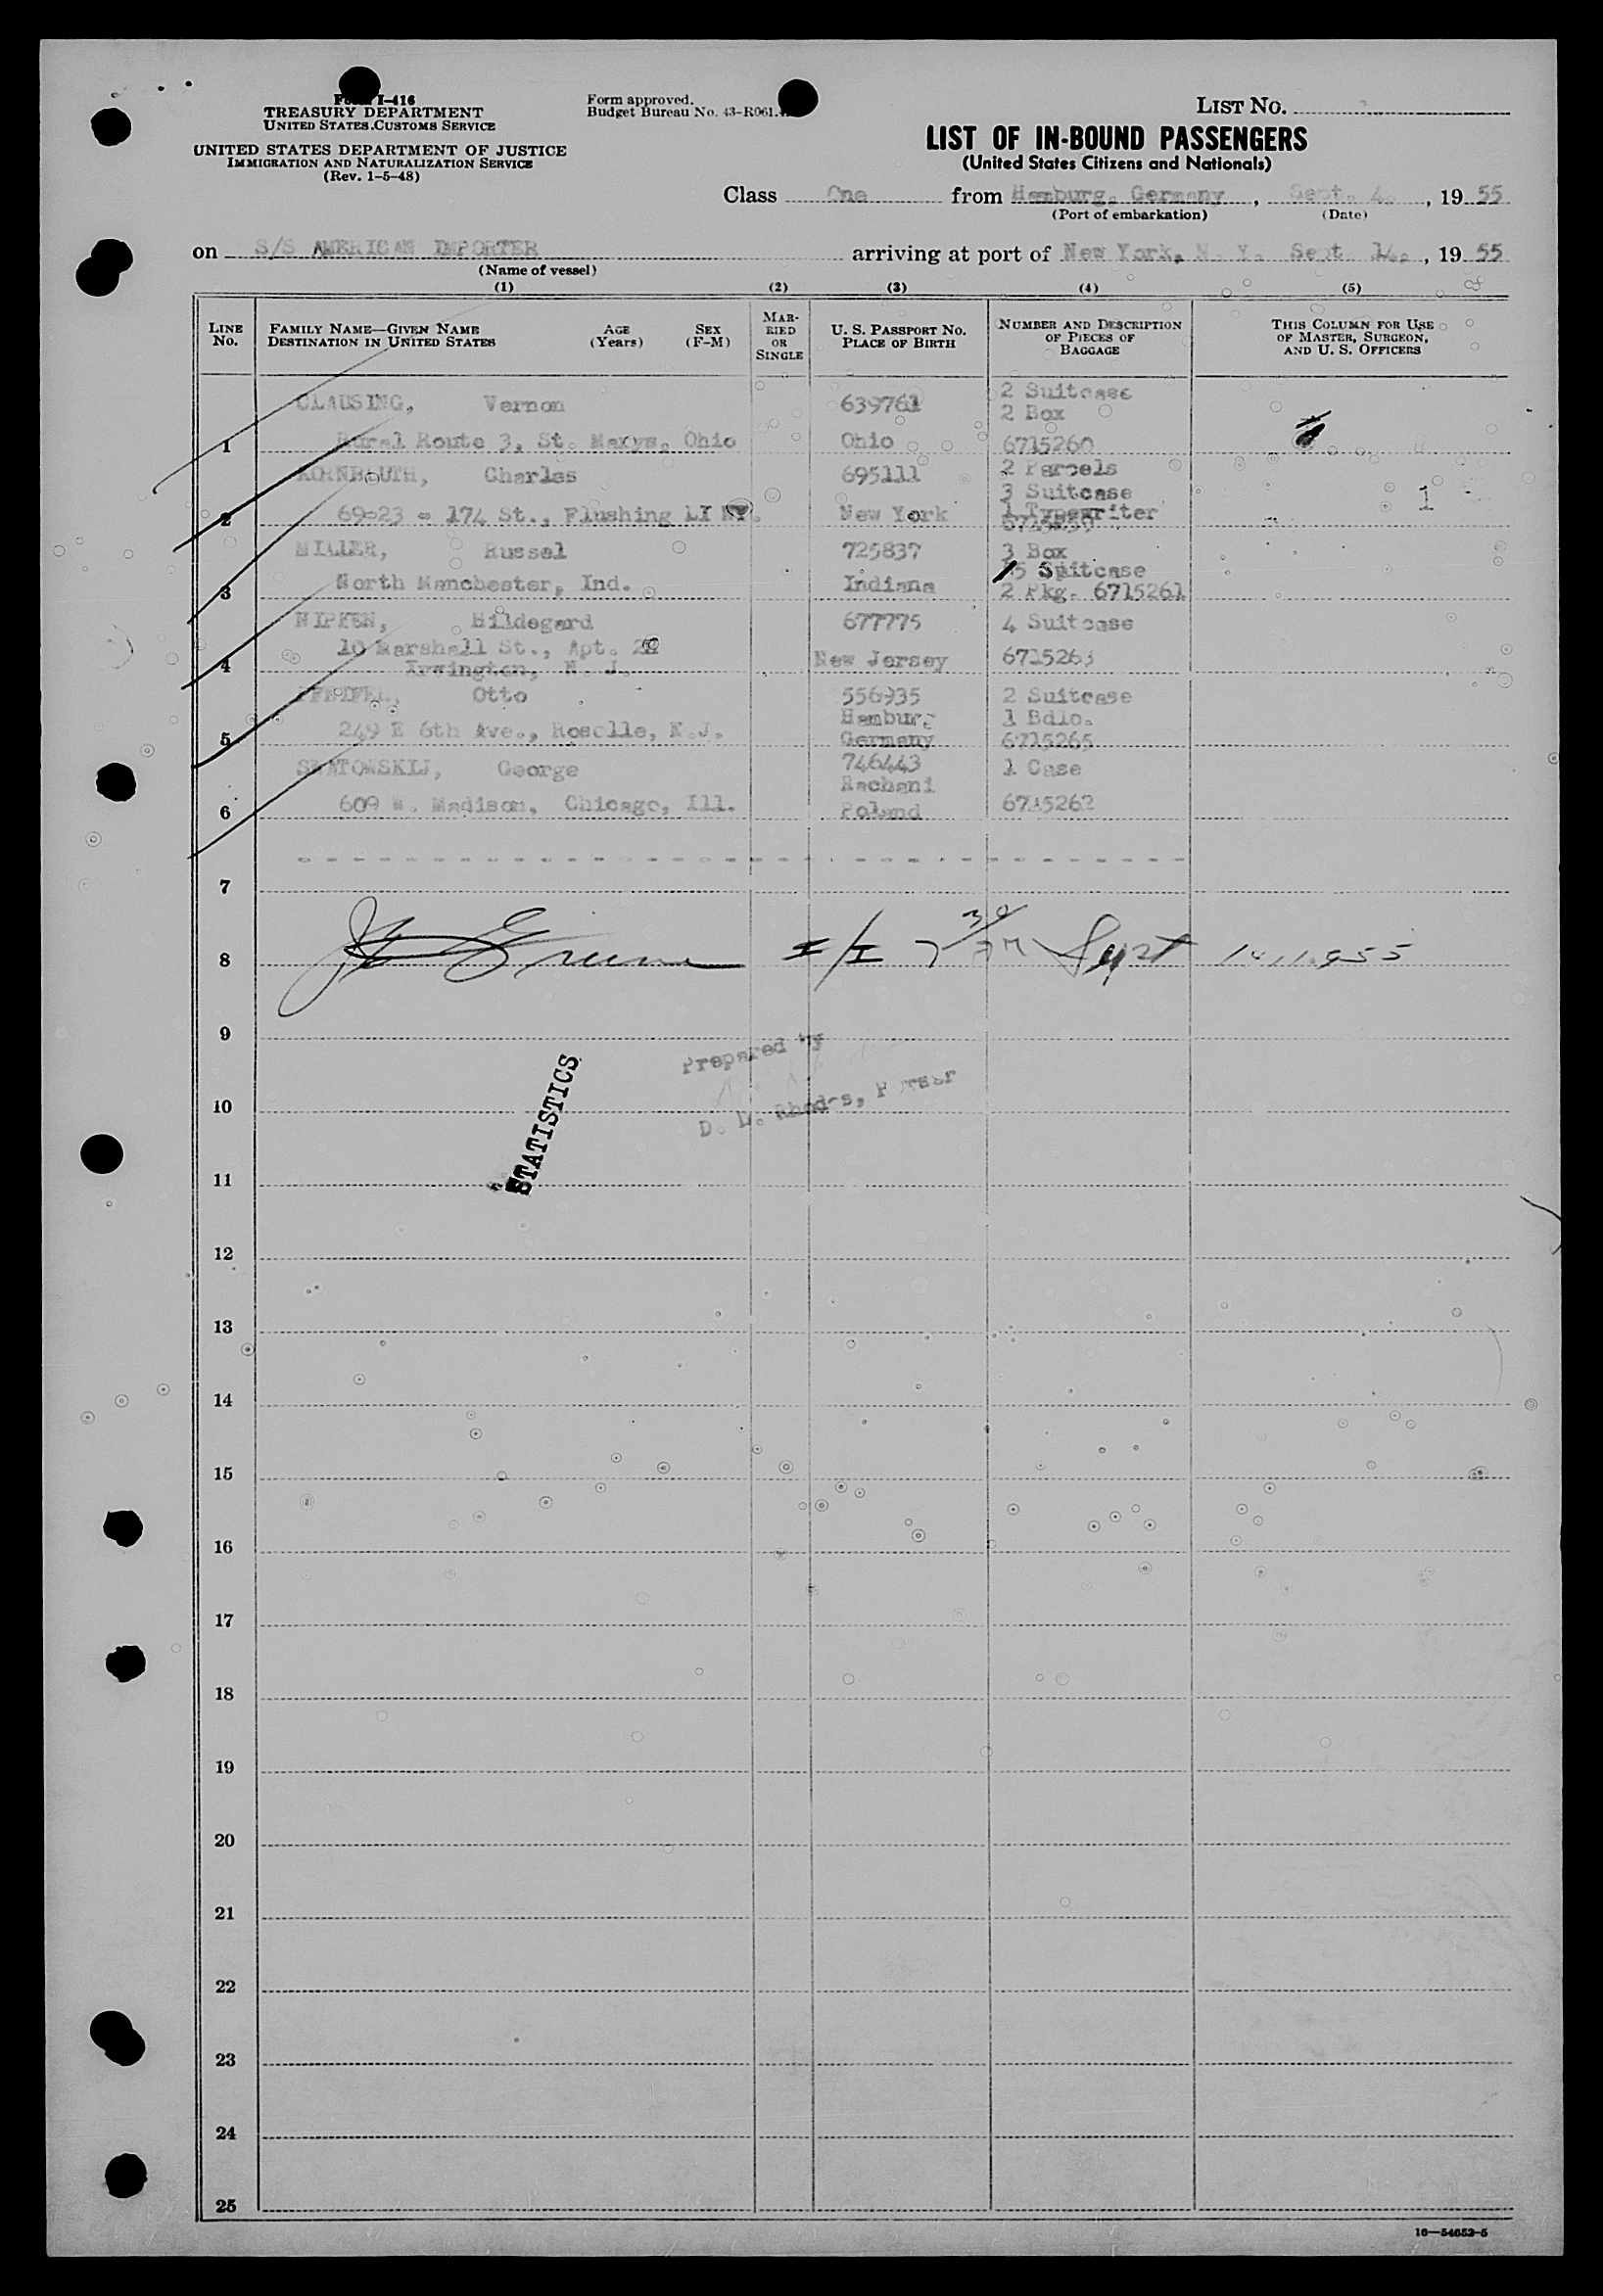 Form I-416
TREASURY DEPARTMENT
UNITED STATES CUSTOMS SERVICE
UNITED STATES DEPARTMENT OF JUSTICE
IMMIGRATION AND NATURALIZATION SERVICE
(Rev. 1-5-48)
Form approved.
Budget Bureau No. 43-R061.
LIST NO.
LIST OF IN-BOUND PASSENGERS
(United States Citizens and Nationals)
Class One from Hamburg, Germany, Sept. 4, 1955
(Port of embarkation) (Date)
on S/S AMERICAN IMPORTER arriving at port of New York, N. Y. Sept. 14, 1955
(Name of vessel)
(1) (2) (3) (4) (5)
LINE NO.
FAMILY NAME—GIVEN NAME
DESTINATION IN UNITED STATES
AGE (Years)
SEX (F-M)
MARRIED OR SINGLE
U. S. PASSPORT NO.
PLACE OF BIRTH
NUMBER AND DESCRIPTION OF PIECES OF BAGGAGE
THIS COLUMN FOR USE OF MASTER, SURGEON, AND U. S. OFFICERS
CLAUSING, Vernon 639761 2 Suitcase
2 Box
1 Rural Route 3, St. Marys, Ohio Ohio 6715260
KORNBLUTH, Charles 695111 2 Parcels
3 Suitcase 1
2 69-23 - 174 St., Flushing LI NY. New York 1 Typewriter
MILLER, Russel 725837 3 Box
5 Suitcase
3 North Manchester, Ind. Indiana 2 Pkg. 6715261
NIPKEN, Hildegard 677775 4 Suitcase
10 Marshall St., Apt.
4 Irvington, N. J. New Jersey 6715263
Otto 556935 2 Suitcase
Hamburg 1 Bdle.
5 249 E 6th Ave., Roselle, N.J. Germany 6715265
George 746443 1 Case
Rachani
6 609 W. Madison, Chicago, Ill. Poland 6715262
7
8 I/I 7 30 Sept 14, 1955
9
Prepared by
10 D. L. Rhodes, Purser
STATISTICS
11
12
13
14
15
16
17
18
19
20
21
22
23
24
25
16—54652-5